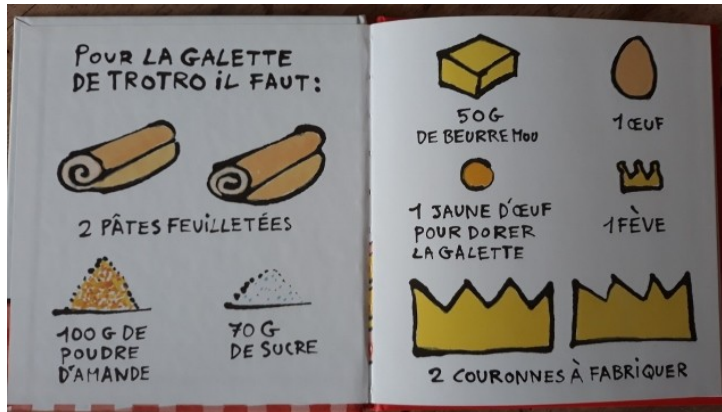 POUR LA GALETTE
DE TROTRO iL FAUT:
2 PÂTES FEUiLLETÉES
100 G DE
POUDRE
D'AMANDE
70 G
DE SUCRE
50 G
DE BEURRE MOU
1 ŒUF
1 JAUNE D'ŒUF
POUR DORER
LA GALETTE
1 FÈVE
2 COURONNES À FABRIQUER